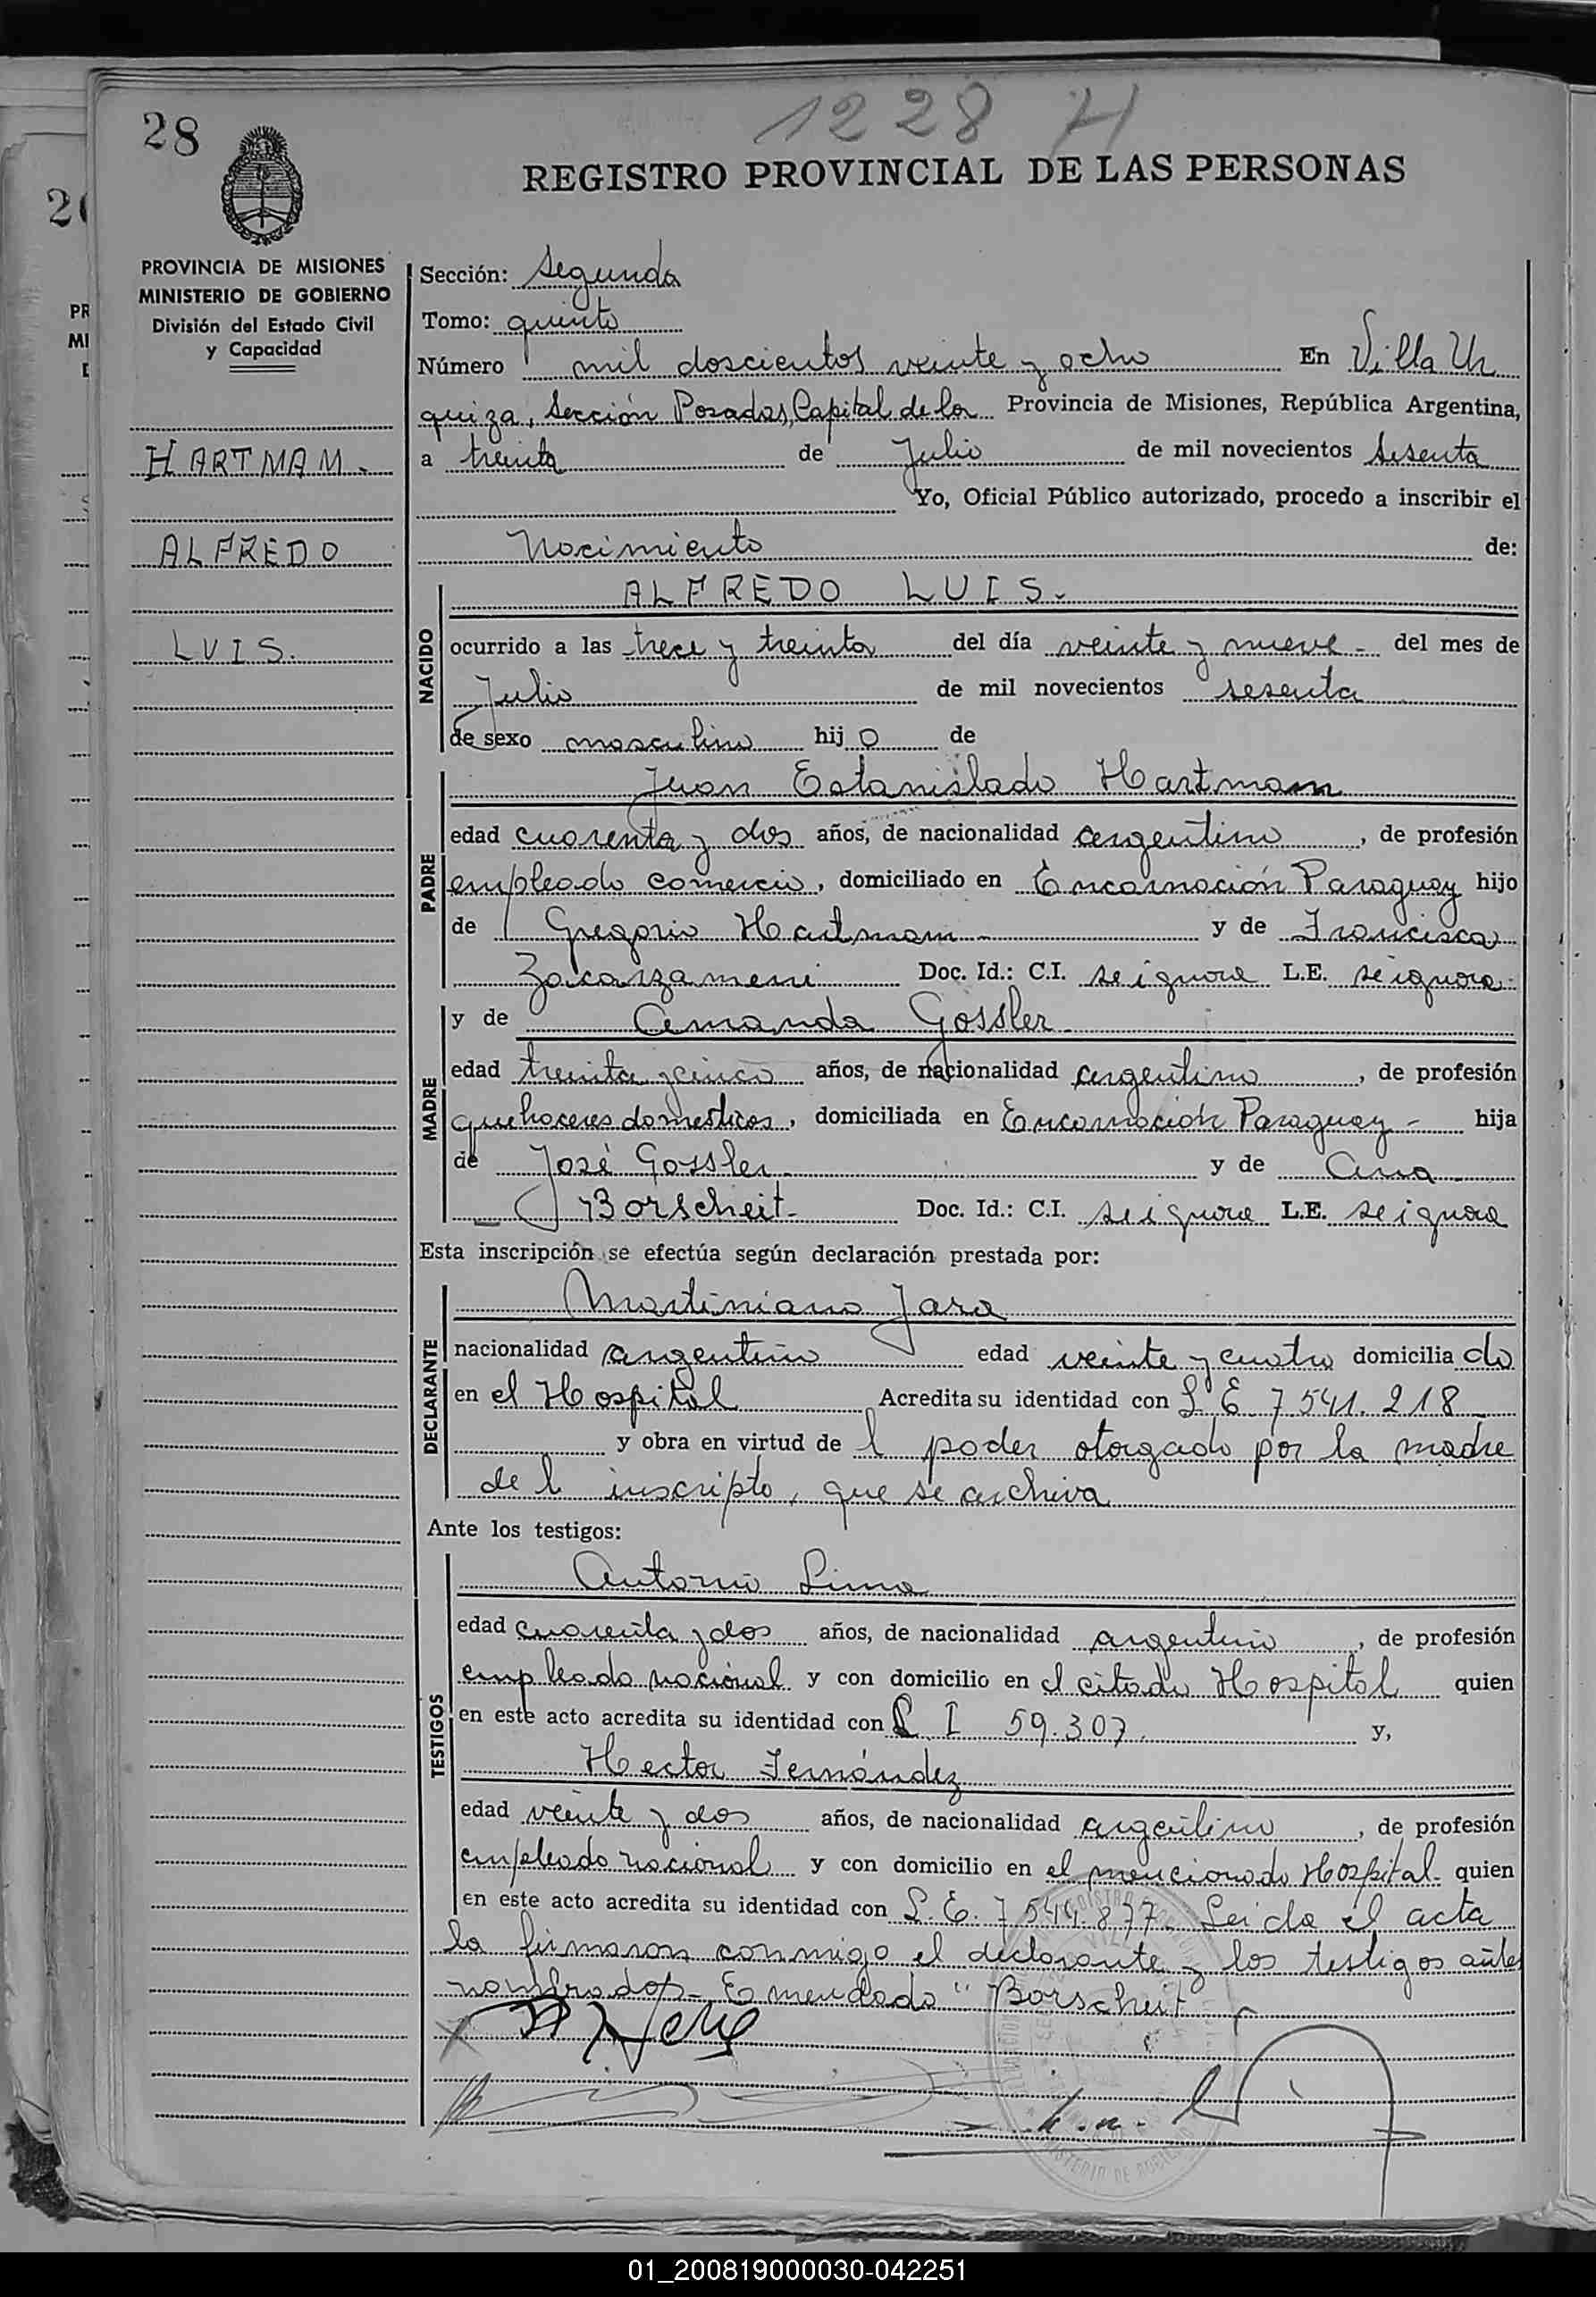 28
1228 H
REGISTRO PROVINCIAL DE LAS PERSONAS
PROVINCIA DE MISIONES
MINISTERIO DE GOBIERNO
División del Estado Civil
y Capacidad
HARTMAM.
ALFREDO
LUIS.
Sección: Segunda
Tomo: quinto
Número mil doscientos veinte y ocho En Villa Ur
quiza, Sección Posadas, Capital de la Provincia de Misiones, República Argentina,
a treinta de Julio de mil novecientos sesenta
Yo, Oficial Público autorizado, procedo a inscribir el
Nacimiento de:
NACIDO
ALFREDO LUIS.
ocurrido a las trece y treinta del día veinte y nueve - del mes de
Julio de mil novecientos sesenta
de sexo masculino hijo de
PADRE
Juan Estanislado Hartmam
edad cuarenta y dos años, de nacionalidad argentino, de profesión
empleado comercio, domiciliado en Encarnación Paraguay hijo
de Gregorio Hartmam - y de Francisca
Zacarzameni Doc. Id.: C.I. se ignora L.E. se ignora -
MADRE
y de Amanda Gossler.
edad treinta y cinco años, de nacionalidad argentina, de profesión
quehaceres domesticos, domiciliada en Encarnación Paraguay - hija
de José Gossler y de Ana
Borscheit - Doc. Id.: C.I. se ignora L.E. se ignora
Esta inscripción se efectúa según declaración prestada por:
DECLARANTE
Martiniano Jara
nacionalidad argentino edad veinte y cuatro domiciliado
en el Hospital Acredita su identidad con L E 7 541. 218
y obra en virtud de l poder otorgado por la madre
de l inscripto, que se archiva
Ante los testigos:
TESTIGOS
Antonio Lima
edad cuarenta y dos años, de nacionalidad argentino, de profesión
empleado nacional y con domicilio en el citado Hospital quien
en este acto acredita su identidad con C I 59.307 y,
Hector Fernández
edad veinte y dos años, de nacionalidad argentino, de profesión
empleado nacional y con domicilio en el mencionado Hospital - quien
en este acto acredita su identidad con L. E. 7 544.877 - Leida el acta
la firmaron conmigo el declarante y los testigos antes
nombrados - Enmendado "Borscheit"
01_200819000030-042251